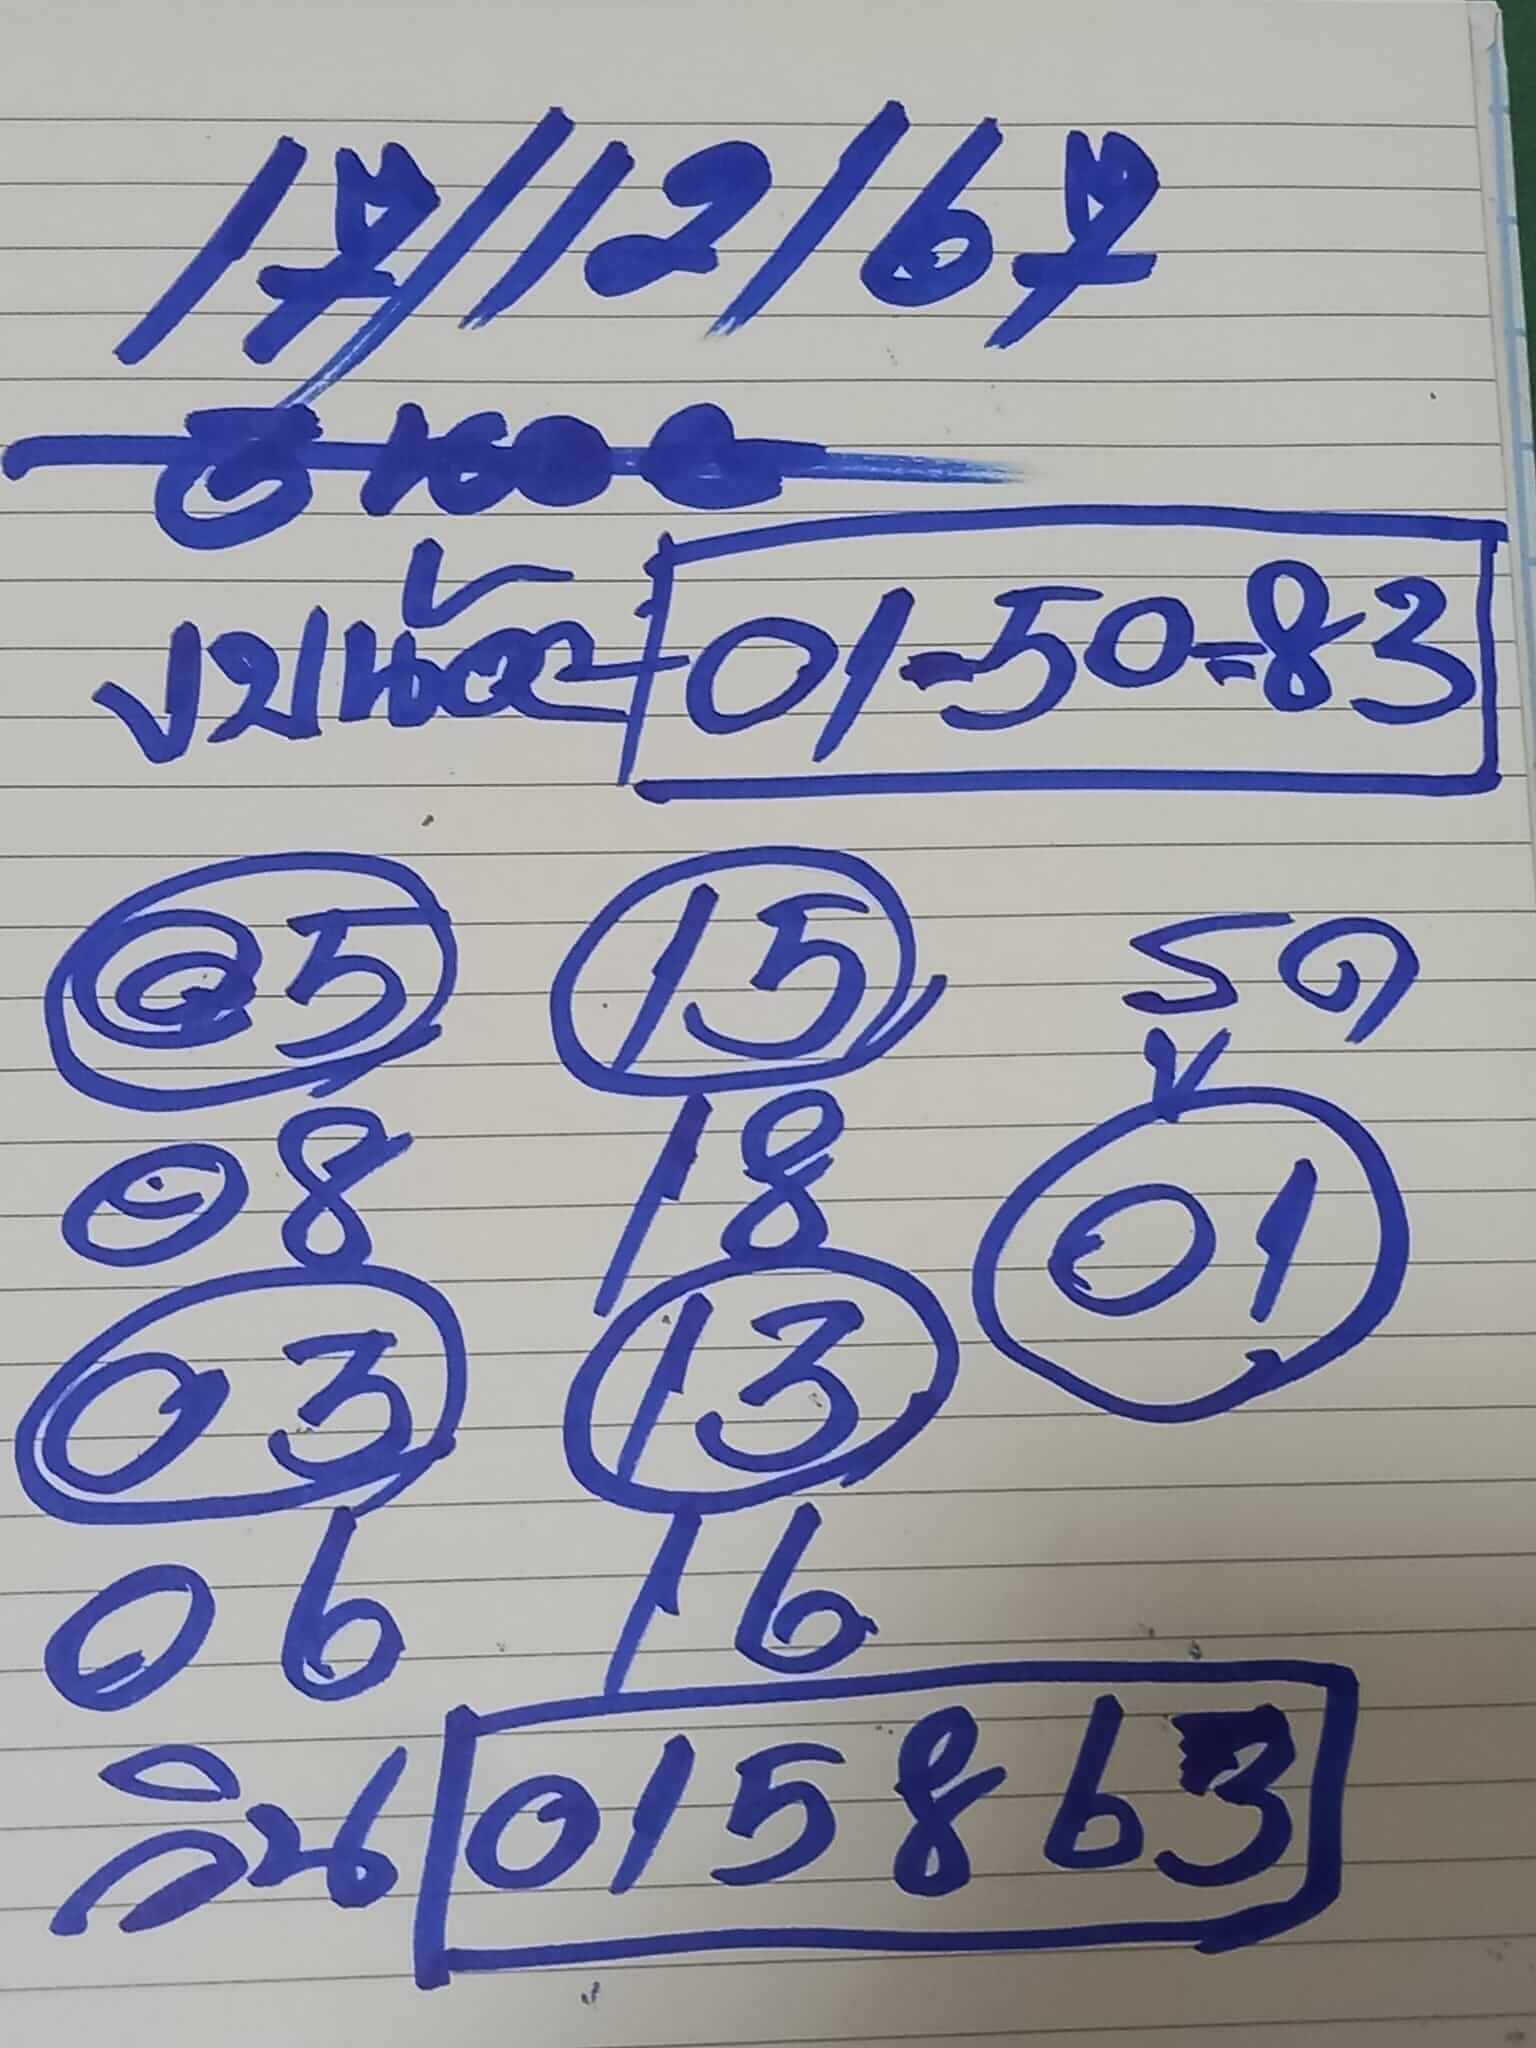 17/12/67
งบน้อย 01-50=83
05 15 รูด
08 18 01
03 13
06 16
วิน 015863